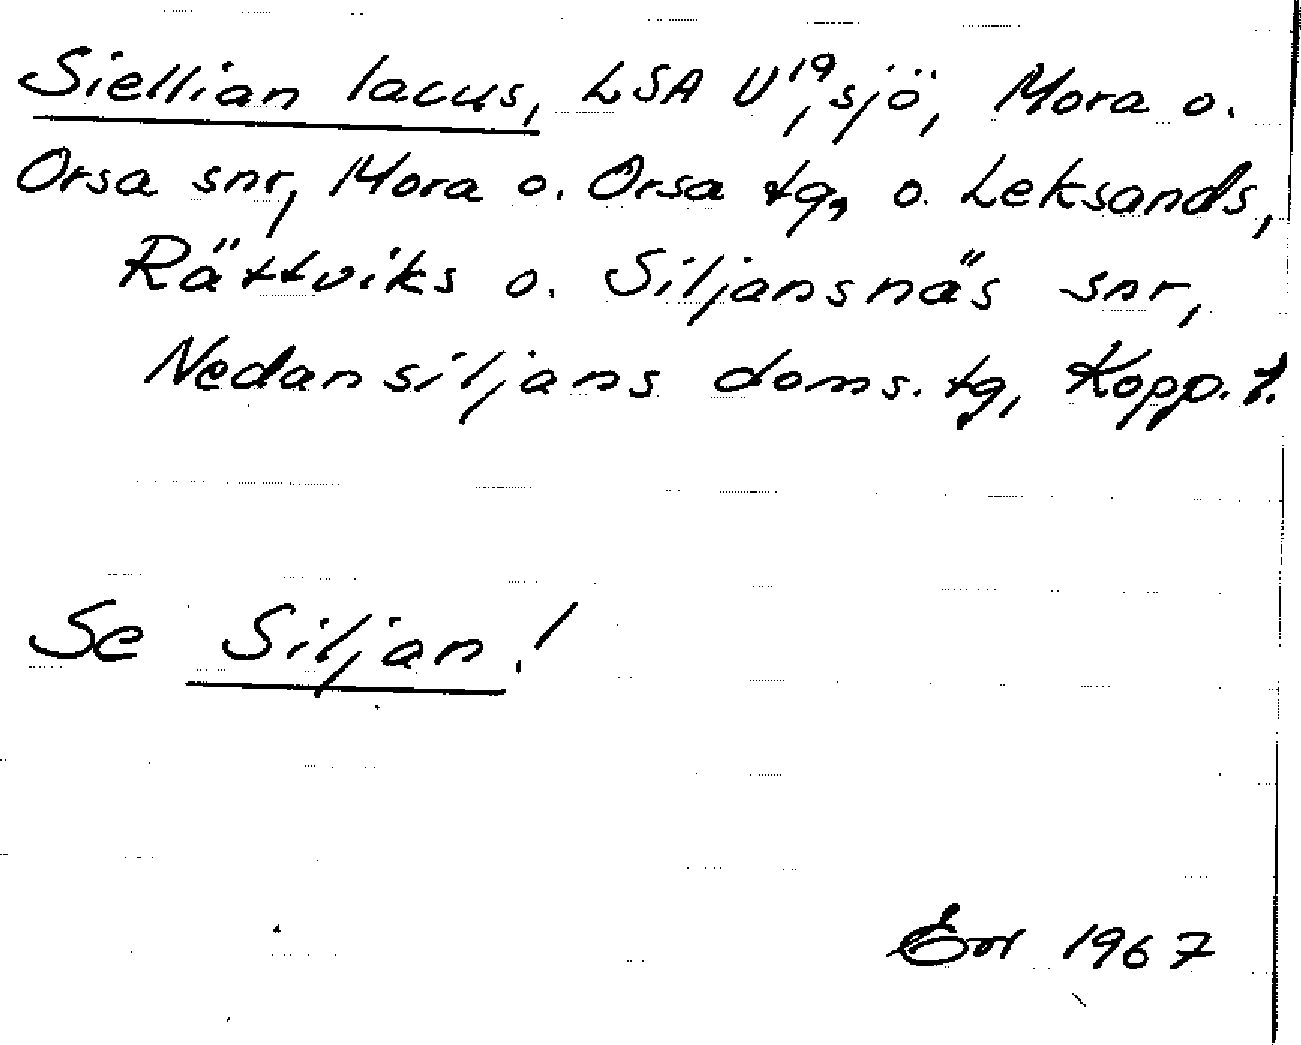 Siellian lacus, LSA U19, sjö, Mora o.
Orsa snr, Mora o. Orsa tg, o. Leksands,
Rättviks o. Siljansnäs snr,
Nedansiljans doms. tg, Kopp. l.
Se Siljan!
1967